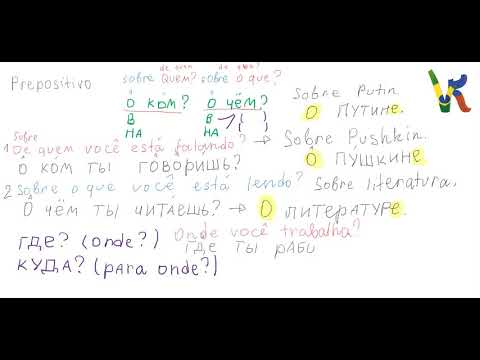 de quem de que?
Prepositivo sobre Quem? sobre o que?
О́ ко́м? О́ чём? Sobre Putin.
В В О ПУТИНе.
НА НА
Sobre Sobre Pushkin.
1 De quem você está falando?
О́ ко́м ты говоришь? О ПУШКИНе
2 Sobre o que você está lendo? Sobre literatura.
О́ чём ты читаешь? О литературе.
Где? (onde?) Onde você trabalha?
Где ты рабо
Куда? (para onde?)